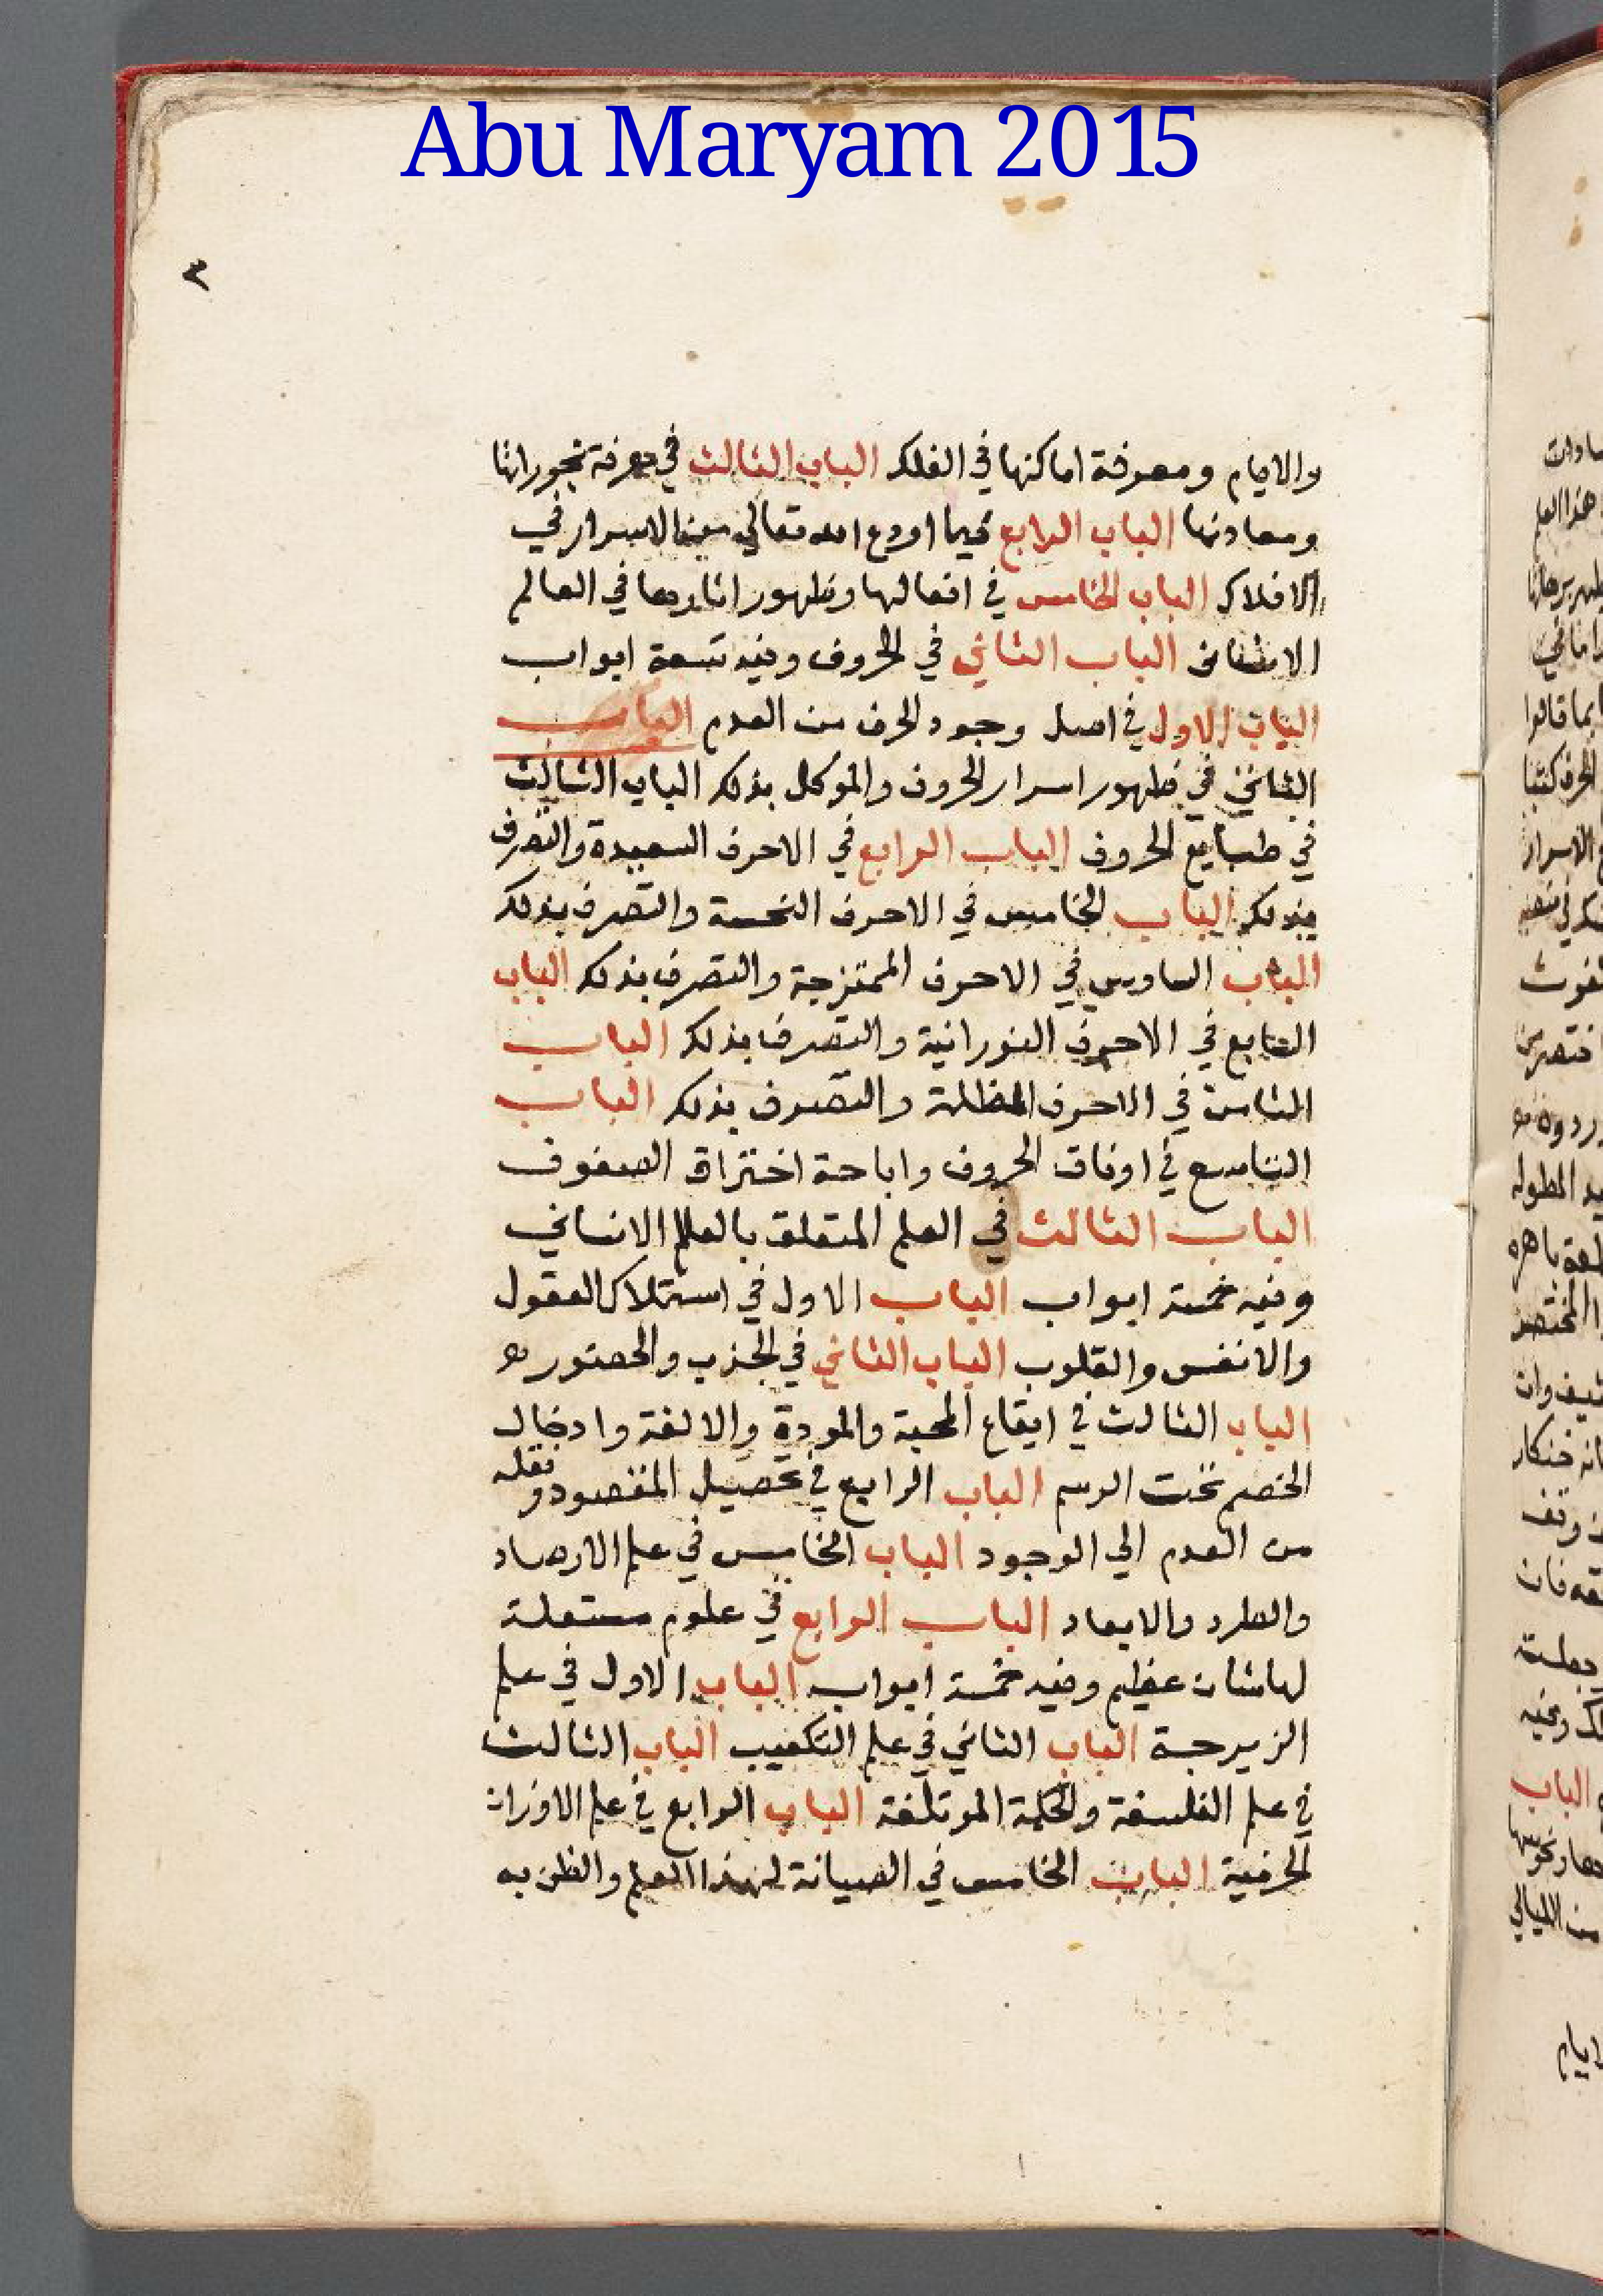 Abu Maryam 2015
٣
والايام ومعرفة اماكنها في الفلك الباب الثالث في معرفة بخوراتها
ومعادنها الباب الرابع فيما اودع الله تعالى من الاسرار في
الافلاك الباب الخامس في افعالها وظهور اثارها في العالم
الباب الثاني في الحروف وفيه تسعة ابواب
الباب الاول في اصل وجود الحرف من العدم الباب
الثاني في ظهور اسرار الحروف والموكل بذلك الباب الثالث
في طبايع الحروف الباب الرابع في الاحرف السعيدة والتصرف
بذلك الباب الخامس في الاحرف النحسة والتصرف بذلك
الباب السادس في الاحرف الممتزجة والتصرف بذلك الباب
السابع في الاحرف النورانية والتصرف بذلك الباب
الثامن في الاحرف المظلمة والتصرف بذلك الباب
التاسع في اوفاق الحروف واباحة اختراق الصفوف
الباب الثالث في العلم المتعلق بالعالم الانساني
وفيه خمسة ابواب الباب الاول في استملاك العقول
والانفس والقلوب الباب الثاني في الجذب والحضور
الباب الثالث في ايقاع المحبة والمودة والالفة وادخال
الخصم تحت الرسم الباب الرابع في تحصيل المقصود ونقله
من العدم الي الوجود الباب الخامس في علم الارصاد
والطرد والابعاد الباب الرابع في علوم مستعملة
لها شان عظيم وفيه خمسة ابواب الباب الاول في علم
الزيرجة الباب الثاني في علم التكعيب الباب الثالث
في علم الفلسفة والحكمة الموتلفة الباب الرابع في علم الاوزان
الحرفية الباب الخامس في الصيانة لهذا العلم والظن به